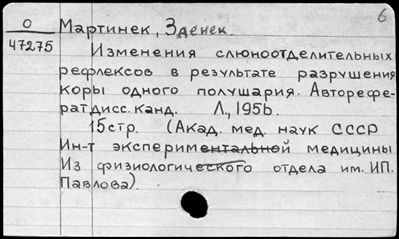 6
О
47275
Мартинек, Зденек.
Изменения слюноотделительных
рефлексов в результате разрушения
коры одного полушария. Авторефе-
рат дисс. канд. Л., 1956.
15 стр. (Акад. мед. наук СССР
Ин-т экспериментальной медицины
Из физиологического отдела им. ИП.
Павлова).